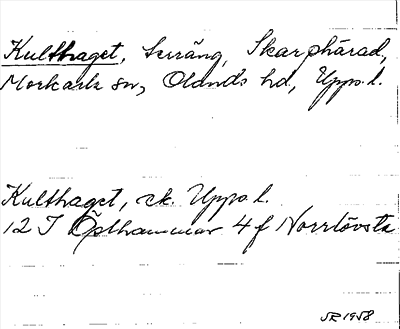 Kulthaget, terräng, Skarphärad,
Morkarla sn, Olands hd, Upps.l.
Kulthaget, ek. Upps.l.
12 I Östhammar 4 f Norrlövsta
SR 1958